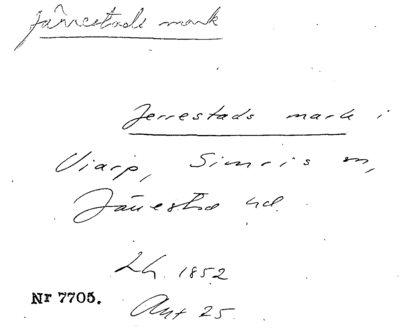 Järrestads mark
Jerrestads mark i
Viarp, Simris sn,
Järrestad hd.
Lh. 1852
Akt 25
Nr 7705.